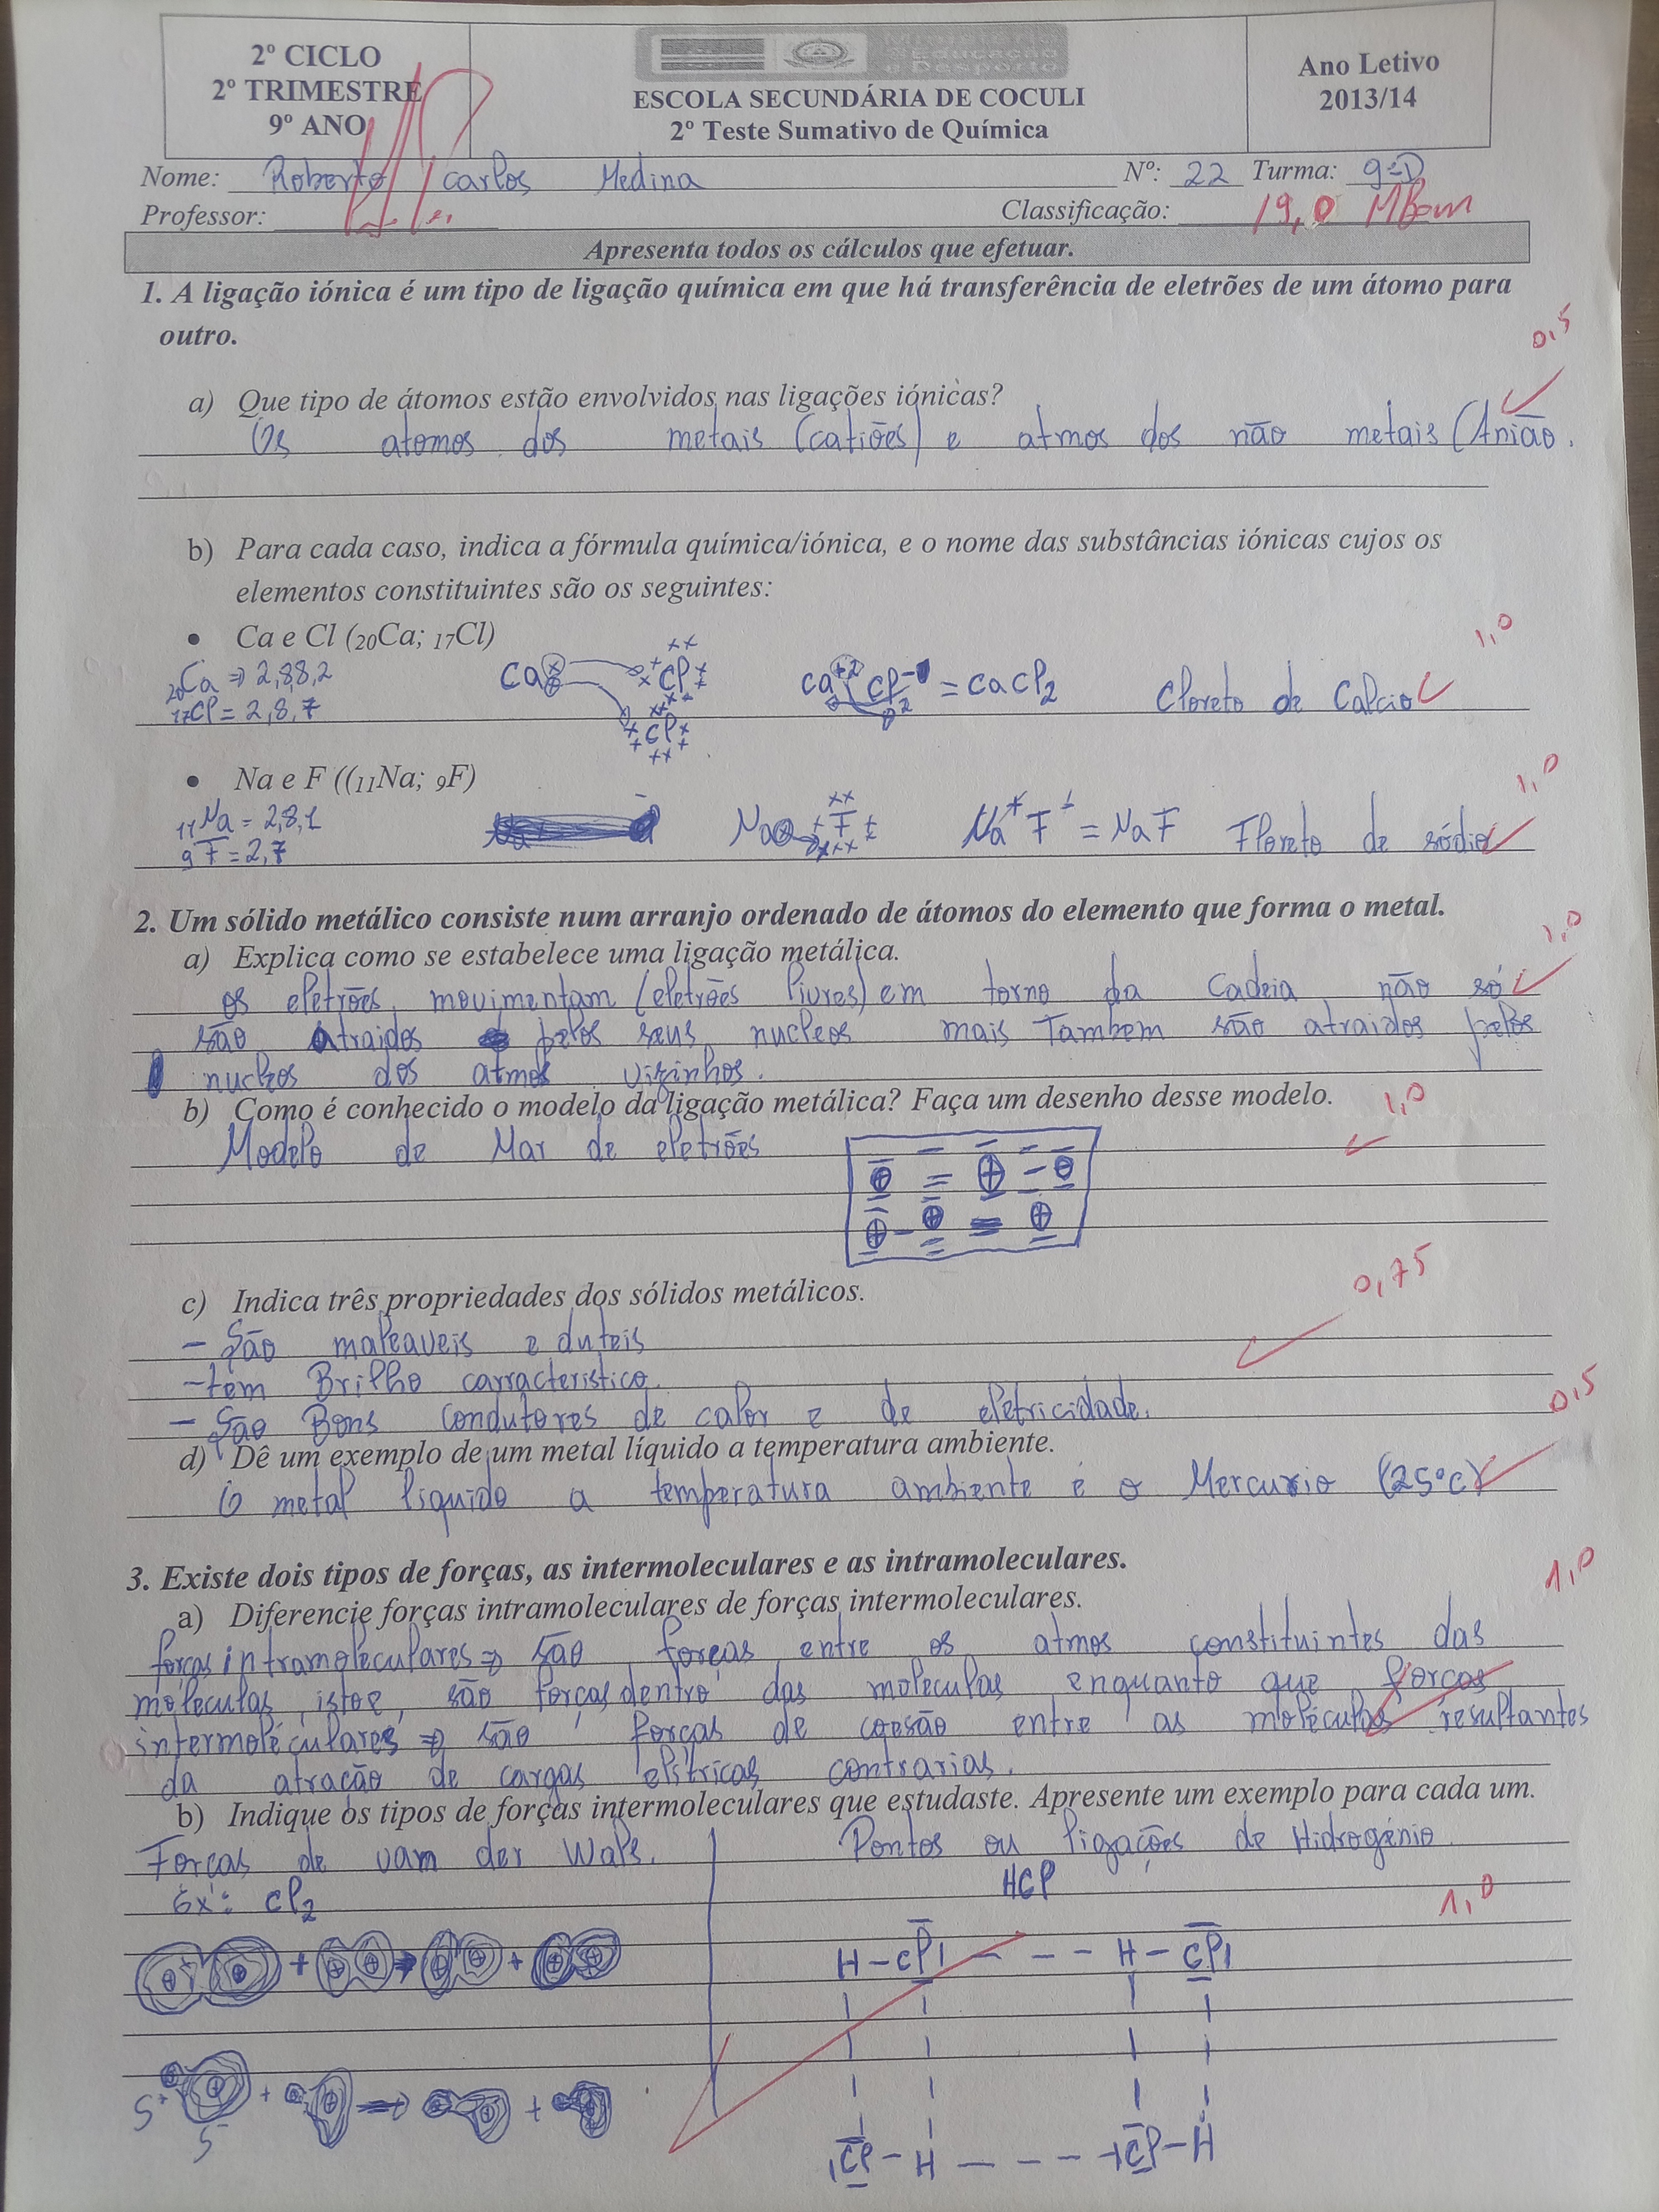 2º CICLO
2º TRIMESTRE
9º ANO
Ministério
da Educação
e Desporto
ESCOLA SECUNDÁRIA DE COCULI
2º Teste Sumativo de Química
Ano Letivo
2013/14
Nome: Roberto Carlos Medina Nº: 22 Turma: 9ºD
Professor: Classificação: 19,0 MBom
Apresenta todos os cálculos que efetuar.
1. A ligação iónica é um tipo de ligação química em que há transferência de eletrões de um átomo para
outro.
0,5
a) Que tipo de átomos estão envolvidos nas ligações iónicas?
Os atomos dos metais (catiões) e atmos dos não metais (Anião.
b) Para cada caso, indica a fórmula química/iónica, e o nome das substâncias iónicas cujos os
elementos constituintes são os seguintes:
• Ca e Cl (₂₀Ca; ₁₇Cl)
1,0
₂₀Ca ⇒ 2,8,8,2 Ca Cl Ca⁺² Cl⁻ = CaCl₂ Cloreto de Calcio
₁₇Cl = 2,8,7 Cl
• Na e F ((₁₁Na; ₉F)
1,0
₁₁Na = 2,8,1 Na F Na⁺ F⁻ = NaF Floreto de sódio
₉F = 2,7
2. Um sólido metálico consiste num arranjo ordenado de átomos do elemento que forma o metal.
1,0
a) Explica como se estabelece uma ligação metálica.
os eletrões movimentam (eletrões livres) em torno da Cadeia não só
são Atraidos pelos seus nucleos mais Tambem são atraidos pelos
nucleos dos atmos vizinhos.
b) Como é conhecido o modelo da ligação metálica? Faça um desenho desse modelo. 1,0
Modelo de Mar de eletrões
c) Indica três propriedades dos sólidos metálicos.
0,75
- São maleaveis e duteis
- têm Brilho carracteristico.
- São Bons Condutores de calor e de eletricidade.
0,5
d) Dê um exemplo de um metal líquido a temperatura ambiente.
O metal liquido a temperatura ambiente é o Mercurio (25ºC)
3. Existe dois tipos de forças, as intermoleculares e as intramoleculares.
1,0
a) Diferencie forças intramoleculares de forças intermoleculares.
forças intramoleculares ⇒ são forças entre os atmos constituintes das
moleculas, isto e, são forças dentro das moleculas enquanto que forças
intermoléculares ⇒ são forças de coesão entre as moléculas resultantes
da atração de cargas elétricas contrarias.
b) Indique os tipos de forças intermoleculares que estudaste. Apresente um exemplo para cada um.
Forças de vam der Wals. Pontos ou ligações de Hidrogénio
Ex: Cl₂ HCl
1,0
+ ⇒ +
H - Cl - - - H - Cl
+ ⇒ +
Cl - H - - - - Cl - H